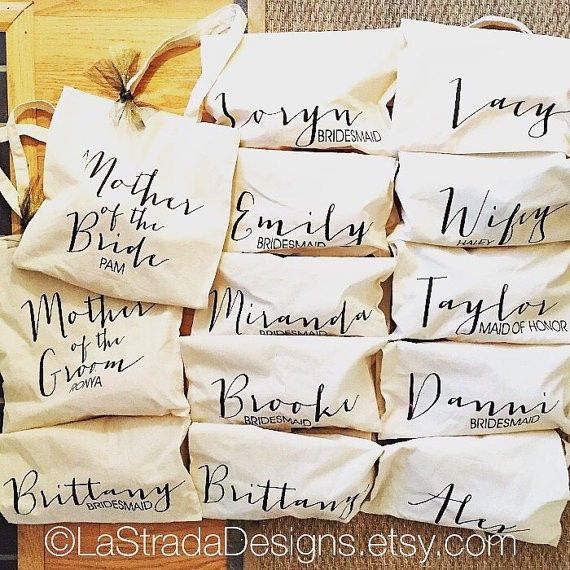 Mother
of the
Bride
PAM
Mother
of the
Groom
RONYA
Brittany
BRIDESMAID
Toryn
BRIDESMAID
Emily
BRIDESMAID
Miranda
BRIDESMAID
Brooke
BRIDESMAID
Brittany
Lacy
Wifey
HALEY
Taylor
MAID OF HONOR
Danni
BRIDESMAID
Alex
©LaStradaDesigns.etsy.com